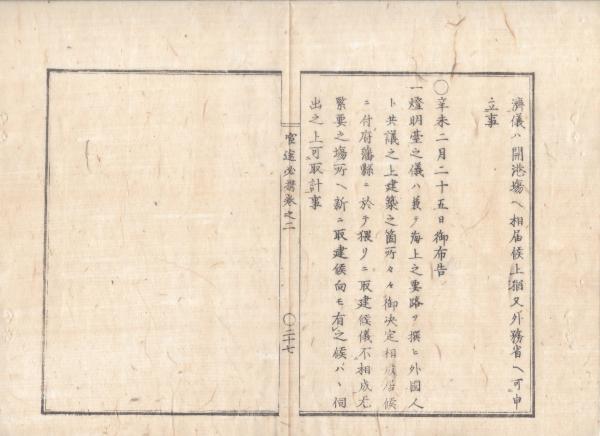 濟儀ハ開港塲ヘ相届候上猶又外務省ヘ可申
立事
〇辛未二月二十五日御布告
一燈明臺之儀ハ兼テ海上之要路ヲ撰ヒ外國人
ト共議之上建築之箇所々々御决定相成居候
ニ付府藩縣ニ於テ猥リニ取建候儀不相成尤
緊要之塲所ヘ新ニ取建候向モ有之候ハヽ伺
出之上可取計事
必携卷之二
〇二十七